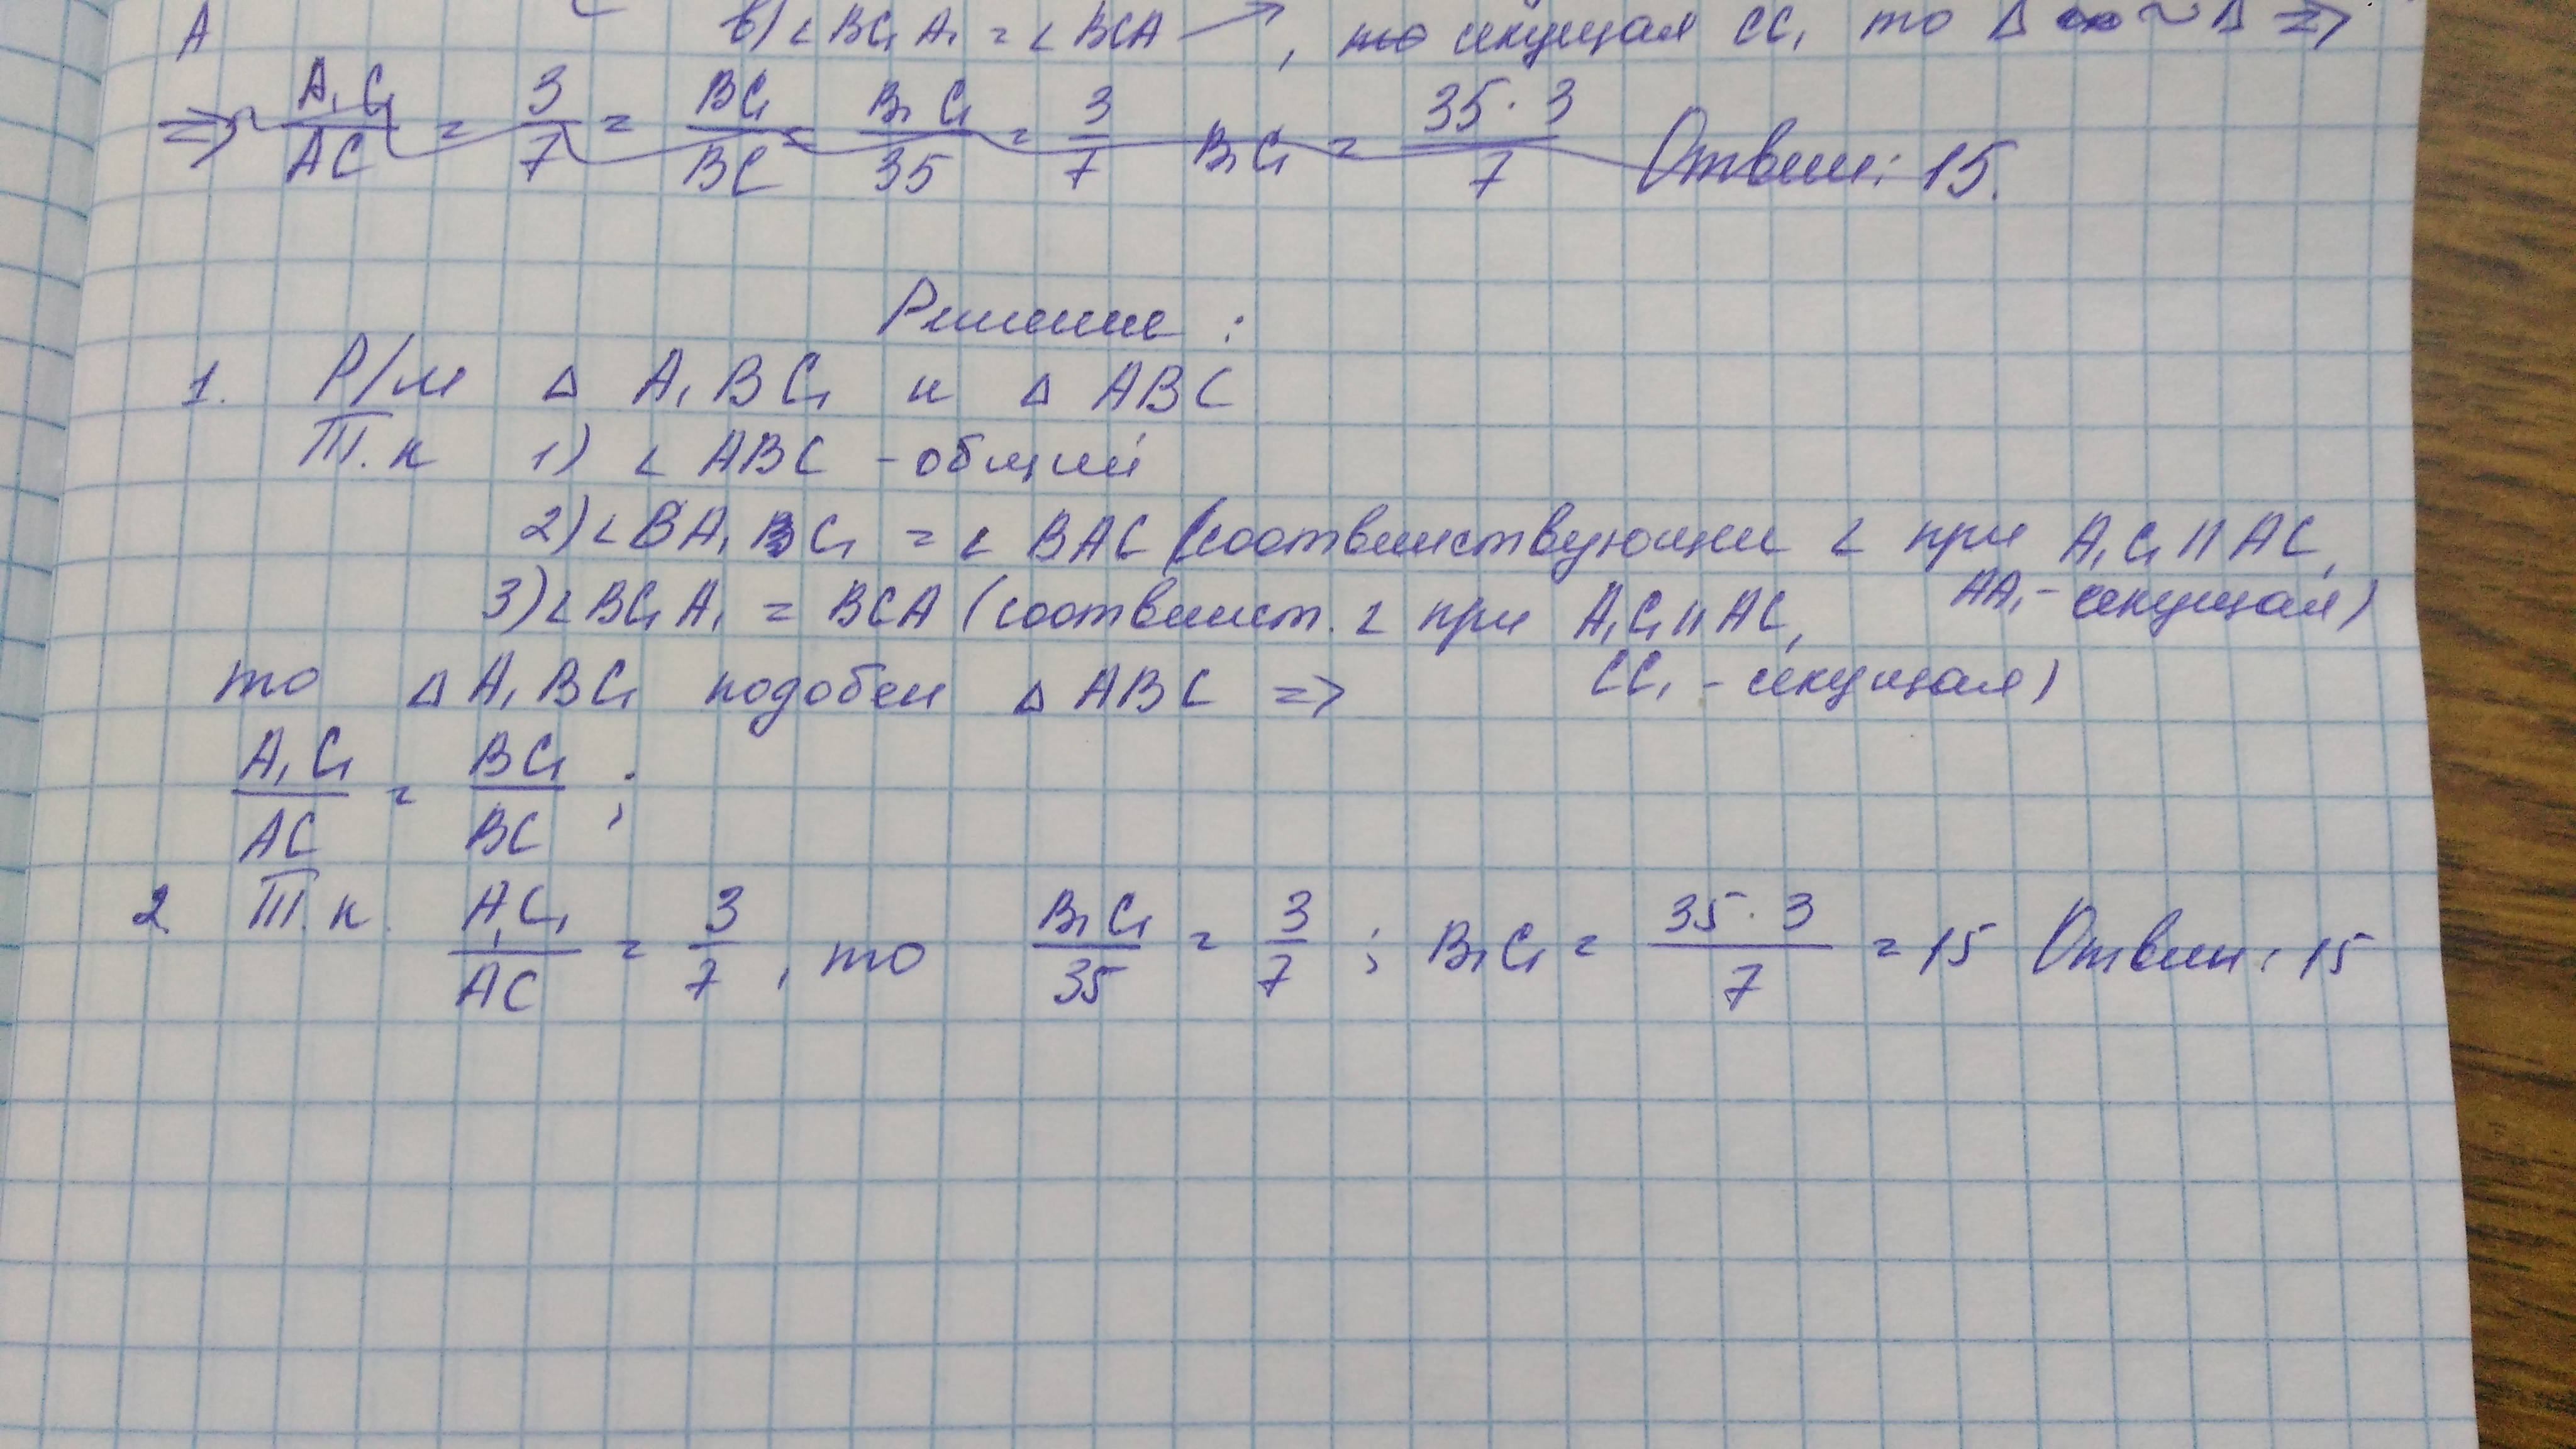 A в) ∠ BC₁A₁ = ∠ BCA → , то секущая CC₁ то Δ ~ Δ =>
=> A₁C₁/AC = 3/7 = BC₁/BC = B₁C₁/35 = 3/7 B₁C₁ = 35·3/7 Ответ: 15.
Решение:
1. Р/м Δ A₁BC₁ и Δ ABC
Т.к 1) ∠ ABC - общий
2) ∠ BA₁C₁ = ∠ BAC (соответствующие ∠ при A₁C₁ || AC,
AA₁ - секущая)
3) ∠ BC₁A₁ = BCA (соответст. ∠ при A₁C₁ || AC,
CC₁ - секущая)
то Δ A₁BC₁ подобен Δ ABC =>
A₁C₁/AC = BC₁/BC ;
2. Т.к. A₁C₁/AC = 3/7, то B₁C₁/35 = 3/7 ; B₁C₁ = 35·3/7 = 15 Ответ: 15